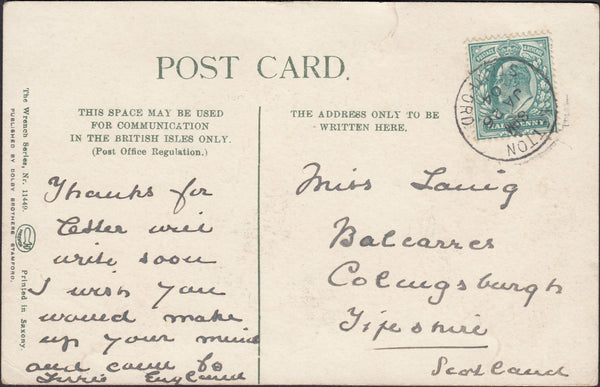 POST CARD.
THIS SPACE MAY BE USED
FOR COMMUNICATION
IN THE BRITISH ISLES ONLY.
(Post Office Regulation.)
THE ADDRESS ONLY TO BE
WRITTEN HERE.
The Wrench Series, Nr. 11449.
Printed in Saxony.
PUBLISHED BY DOLBY BROTHERS STAMFORD.
Thanks for
letter will
write soon
I wish you
would make
up your mind
and come to
England
Miss
Balcarres
Colingsburgh
Fifeshire
Scotland
JA 26